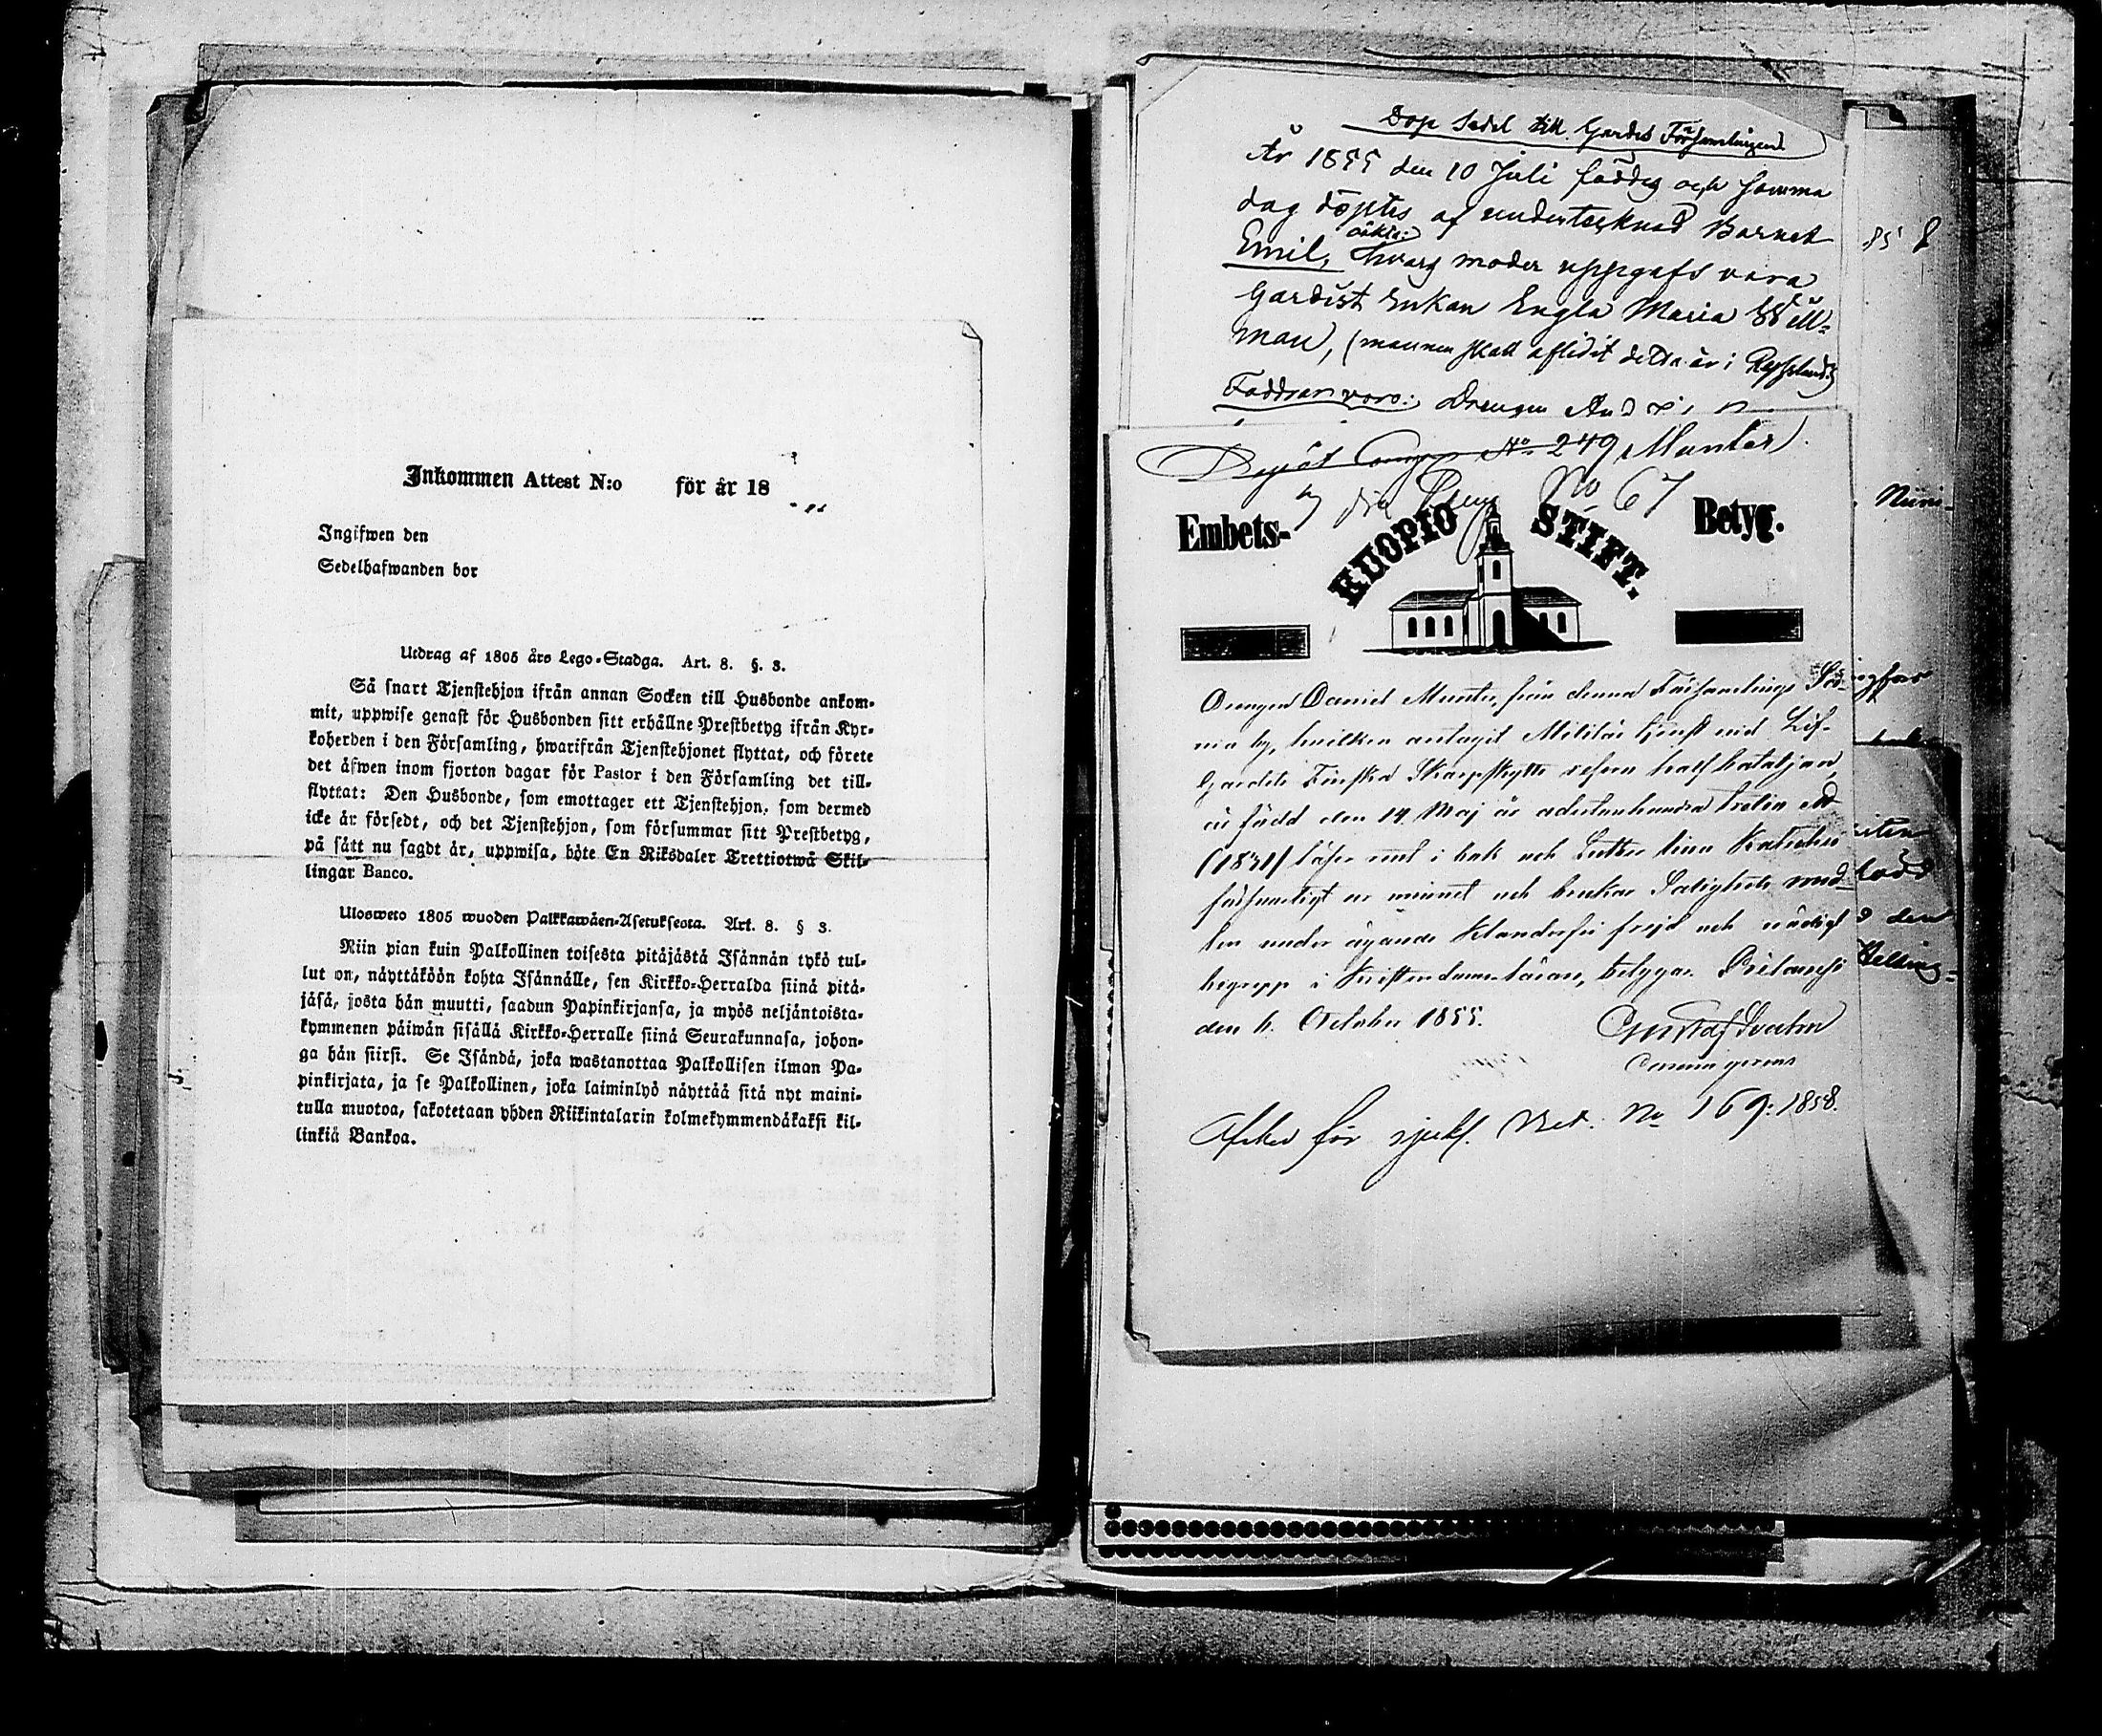 Inkommen Attest N:o för år 18
Ingifwen den
Sedelhafwanden bor
Utdrag af 1805 års Lego-Stadga. Art. 8. §. 3.
Så snart Tjenstehjon ifrån annan Socken till Husbonde ankom-
mit, uppwise genast för Husbonden sitt erhållne Prestbetyg ifrån Kyr-
koherden i den Församling, hwarifrån Tjenstehjonet flyttat, och förete
det äfwen inom fjorton dagar för Pastor i den Församling det till-
flyttat: Den Husbonde, som emottager ett Tjenstehjon, som dermed
icke är försedt, och det Tjenstehjon, som försummar sitt Prestbetyg,
på sätt nu sagdt är, uppwisa, böte En Riksdaler Trettiotwå Skil-
lingar Banco.
Ulosweto 1805 wuoden Palkkawäen-Asetuksesta. Art. 8. § 3.
Niin pian kuin Palkollinen toisesta pitäjästä Isännän tykö tul-
lut on, näyttäköön kohta Isännälle, sen Kirkko-Herralda siinä pitä-
jäsä, josta hän muutti, saadun Papinkirjansa, ja myös neljäntoista-
kymmenen päiwän sisällä Kirkko-Herralle siinä Seurakunnasa, johon-
ga hän siirsi. Se Isändä, joka wastanottaa Palkollisen ilman Pa-
pinkirjata, ja se Palkollinen, joka laiminlyö näyttää sitä nyt maini-
tulla muotoa, sakotetaan yhden Riikintalarin kolmekymmendäkaksi kil-
linkiä Bankoa.
Dop Sedel till Gardes Församlingen
År 1855 den 10 Juli föddes och samma
dag döptes af undertecknad Barnet
oäkta
Emil, hvars moder uppgafs vara
Gardist Enkan Engla Maria Will-
man, (mannen skall aflidit detta år i Ryssland)
Faddrar voro: Drengen
Depôt Comp No 249 Munter
No 67
Embets- KUOPIO STIFT. Betyg.
Drengen Daniel Munter, från denna Församlings
by, hvilken antagit Militär tjenst vid Lif-
Gardets Finska Skarpskytte reserv half bataljon
är född den 14 Maj år adertonhundra trettio ett
(1831) läser rent i bok och Luther
försvarligt ur minnet och brukar Salighets med-
len under ägande klanderfri frejd och nödigt
begrepp i Kristendomsläran, betygar. Pielavesi
den 6. October 1855. Gustaf
Comminister
för sjukl. Bet. No 169: 1858.